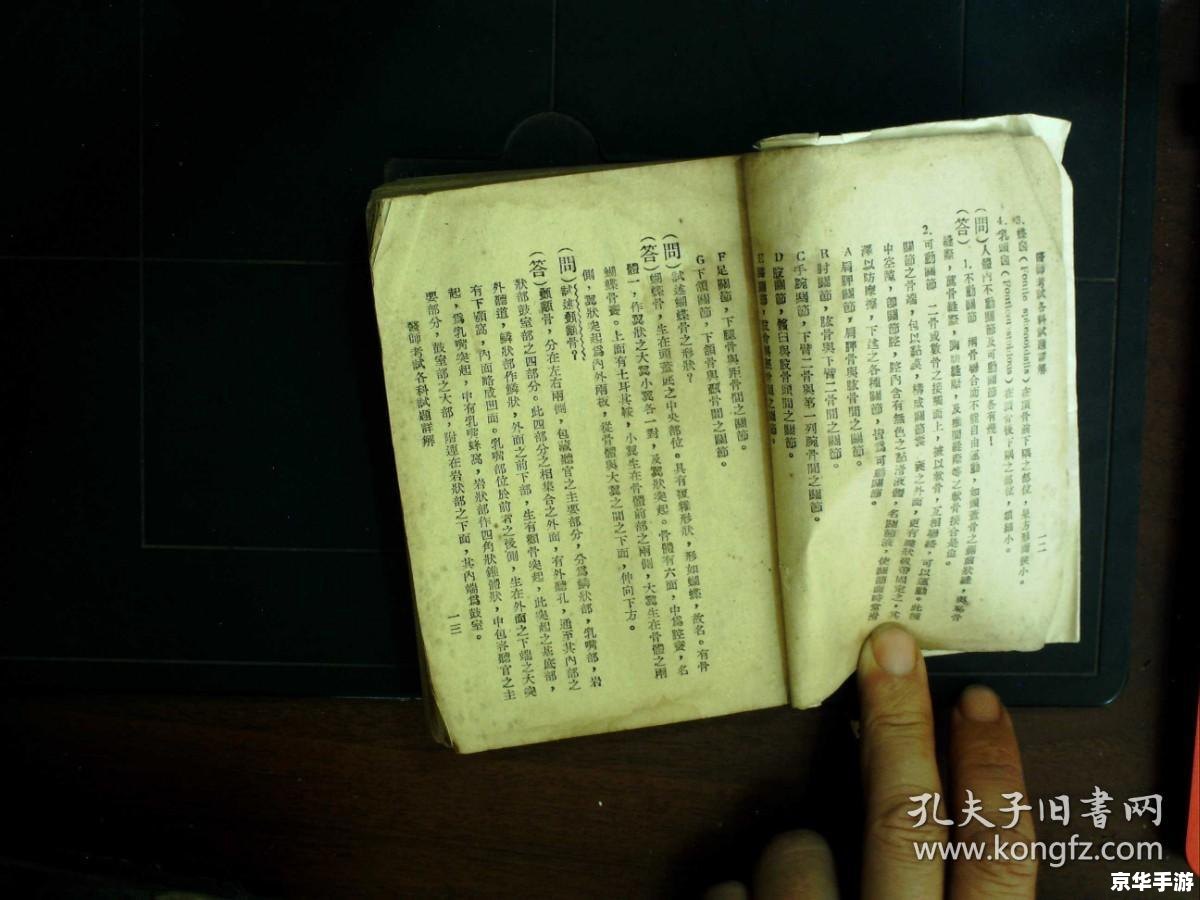 醫師考試各科試題詳解　一二
在頂骨前下隅之部位，呈方形而狹小。
在頂骨後下隅之部位，頗細小。
（問）人體內不動關節及可動關節各有幾！
（答）1.不動關節　兩骨聯合而不能自由運動，如頭蓋骨之
2.可動關節　二骨或數骨之接觸面上，被以軟骨，互相聯絡，可以運動。此種
關節之骨端，包以黏膜，構成關節囊。囊之外面，更有
中空隙，卽關節腔，腔內含有無色之黏滑液體，名關節液，使關節面時常滑
澤以防摩擦，下述之各種關節，皆爲可動關節。
A肩胛關節，肩胛骨與肱骨間之關節。
B肘關節，肱骨與下臂二骨間之關節。
C手腕關節，下臂二骨與第一列腕骨間之關節。
D股關節，髖臼與股骨頭間之關節。
E膝關節，
F足關節，下腿骨與距骨間之關節。
G下頷關節，下頷骨與顳骨間之關節。
（問）試述蝴蝶骨之形狀？
（答）蝴蝶骨，生在頭蓋底之中央部位。具有複雜形狀，形如蝴蝶，故名。有骨
體一，作翼狀之大翼小翼各一對，及翼狀突起。骨體有六面，中爲腔竇，名
蝴蝶骨竇。上面有土耳其鞍，小翼生在骨體前部之兩側，大翼生在骨體之兩
側，翼狀突起爲內外兩板，從骨體與大翼之間之下面，伸向下方。
（問）試述顳顬骨？
（答）顳顬骨，分在左右兩側，包藏聽官之主要部分，分爲鱗狀部，乳嘴部，岩
狀部鼓室部之四部分。此四部分之相集合之外面，有外聽孔，通至其內部之
外聽道，鱗狀部作鱗狀，外面之前下部，生有顴骨突起，此突起之基底部，
有下頷窩，內面略成凹面。乳嘴部位於前者之後側，生在外面之下端之大突
起，爲乳嘴突起，中有乳嘴蜂窩，岩狀部作四角狀錐體狀，中包容聽官之主
要部分，鼓室部之大部，附連在岩狀部之下面，其內端爲鼓室。
醫師考試各科試題詳解　一三
孔夫子旧書网
www.kongfz.com
京华手游